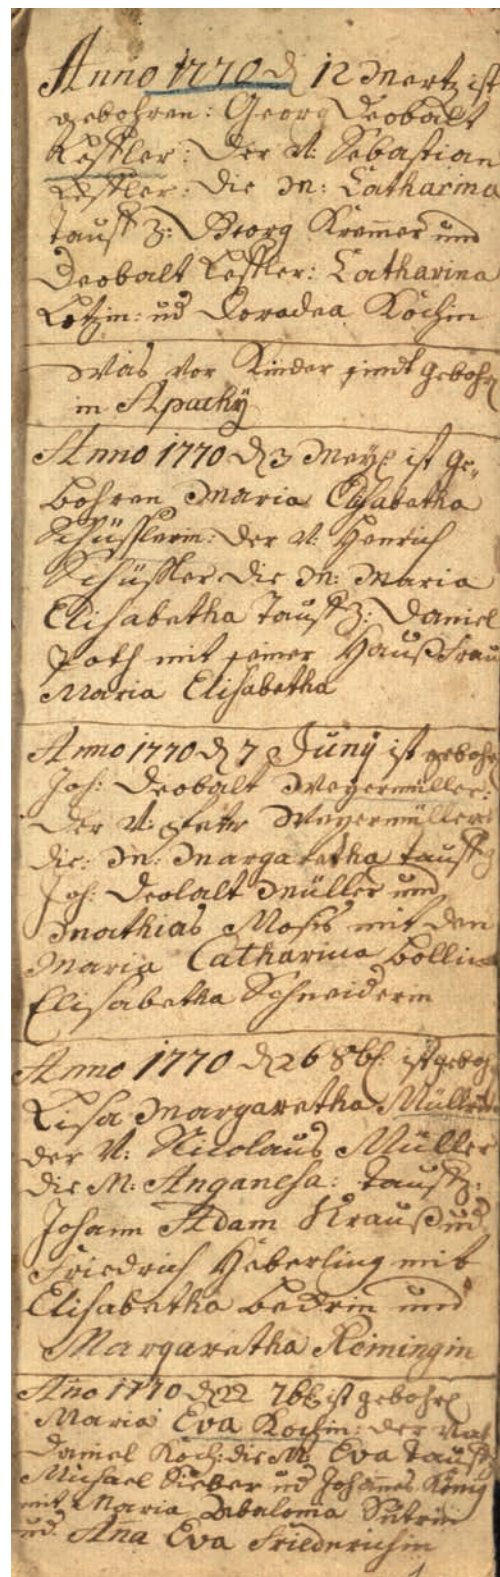 Anno 1770 d 12 Mertz ist
gebohren: Georg Deobalt
Kessler: der V: Sebastian
Kessler: die M: Catharina
Tauff Z: Georg Kremer und
Deobalt Kessler: Catharina
Lotzin: ud Doradea Köchin
Was vor Kinder sindt gebohr
in Apachÿ
Anno 1770 d 3 Meÿ ist ge=
bohren Maria Elisabetha
Schüsslerin: der V: Henrich
Schüssler die M: Maria
Elisabetha Tauff Z: Daniel
Poth mit seiner Hauß Frau
Maria Elisabetha
Anno 1770 d 7 Junÿ ist gebohr
Joh: Deobalt Weyermüller:
der V: Peter Weyermüller
die: M: Margaretha Tauff Z
Joh: Deolalt Müller und
Mathias Moses mit den
Maria Catharina Bollin
Elisabetha Schneiderin
Anno 1770 d 26 8b ist geboh
Lisa Margaretha Müller
der V: Nicolaus Müller
die M: Anganesa: Tauff Z:
Johann Adam Krauß ud
Friedrich Heberling mit
Elisabetha Bedrin und
Margaretha Romingin
Ano 1770 d 22 7b ist gebohr
Maria Eva Kochin: der Vat
Daniel Koch: die M: Eva Tauff
Michael Sieber ud Johannes König
mit Maria Abaloma Sutrin
ud Ana Eva Friederichin